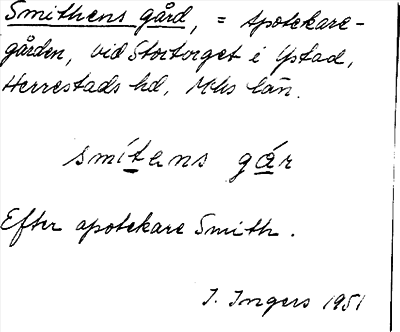 Smithens gård, = Apotekare-
gården, vid Stortorget i Ystad,
Herrestads hd, Mhs län.
smítens gár
Efter apotekare Smith.
I. Ingers 1951